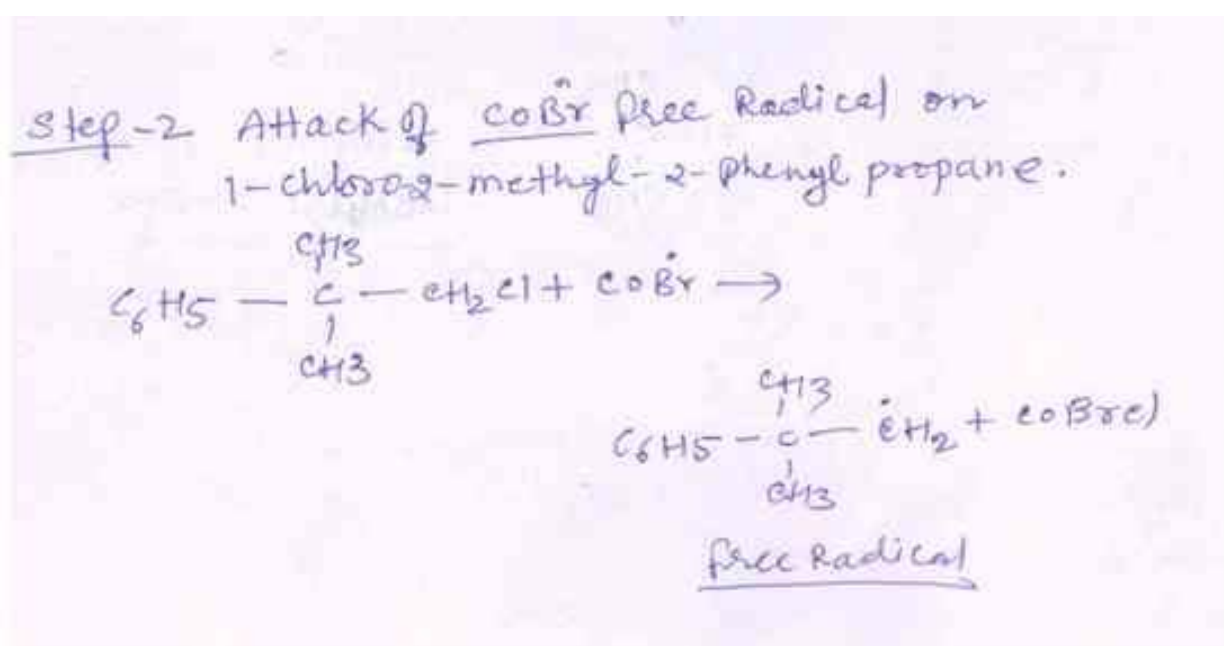 Step-2 Attack of CoBṙ free Radical on
1-chloro-2-methyl-2-phenyl propane.
CH3
C6H5 — C — CH2Cl + CoBṙ →
CH3
CH3
C6H5 — C — ĊH2 + CoBrCl
CH3
free Radical